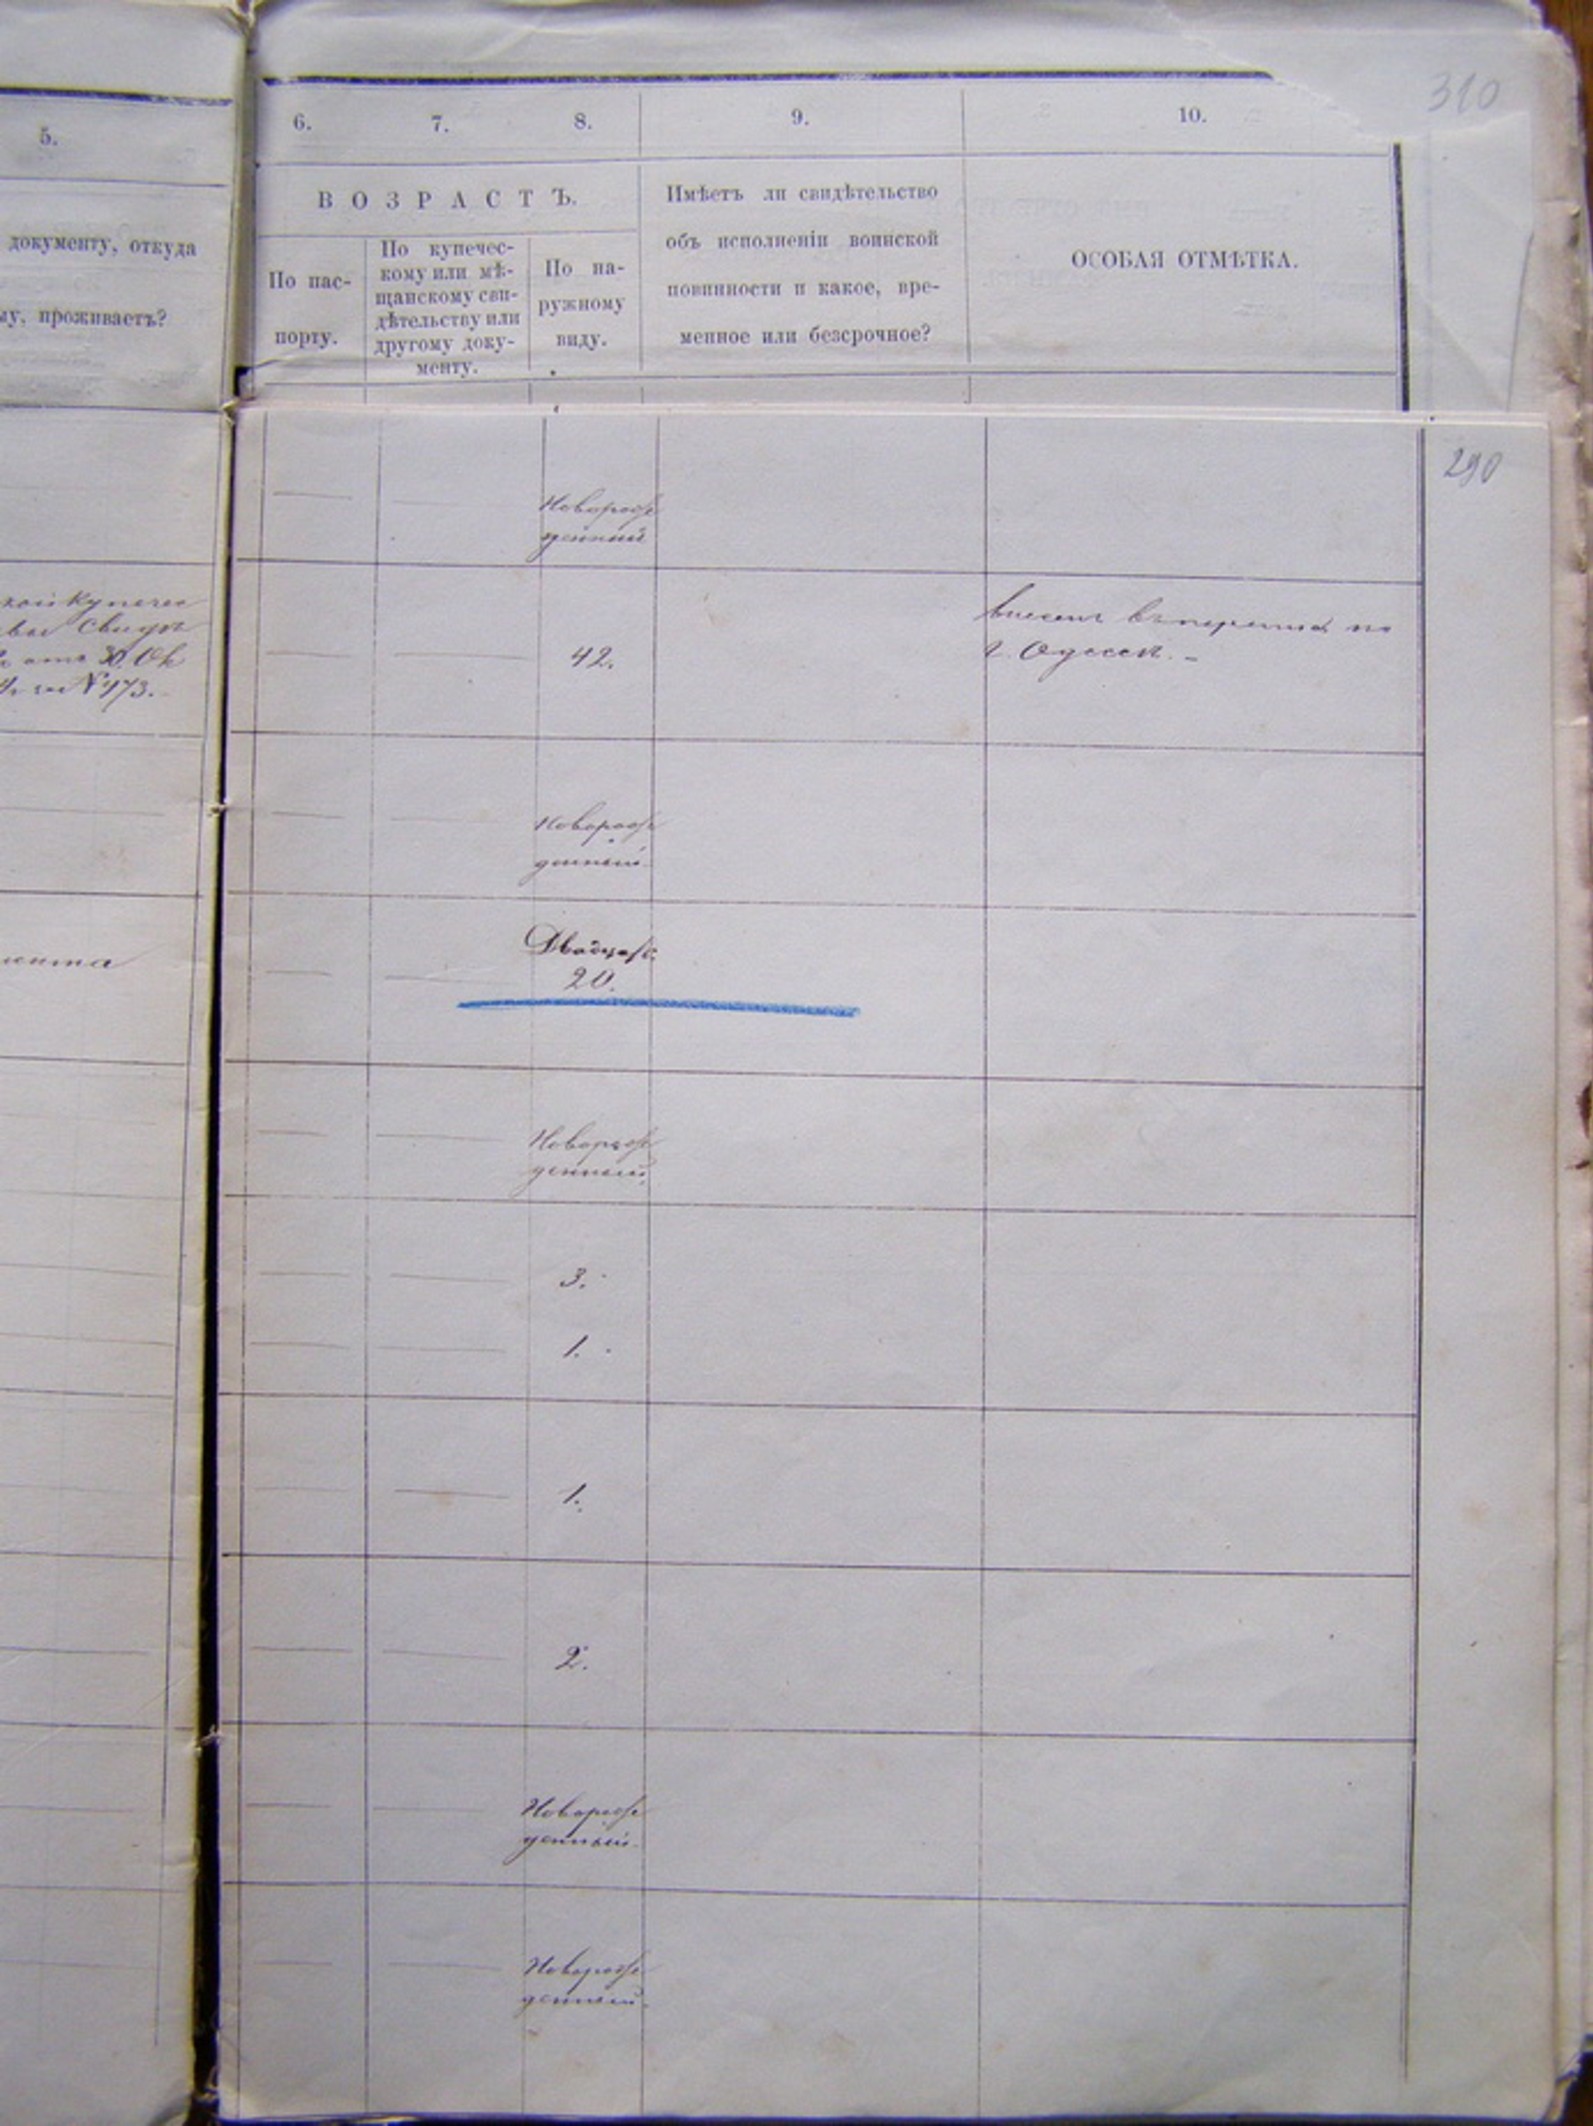 310
5.
6.
7.
8.
9.
10.
документу, откуда
му, проживаетъ?
ВОЗРАСТЪ.
По пас-
порту.
По купечес-
кому или мѣ-
щанскому сви-
дѣтельству или
другому доку-
менту.
По на-
ружному
виду.
Имѣетъ ли свидѣтельство
объ исполненіи воинской
повинности и какое, вре-
менное или безсрочное?
ОСОБАЯ ОТМѢТКА.
290
Новорож
денный
Купечес
Свидѣ
отъ 30 Ок
за № 473.
42.
внесенъ въ по
г. Одессѣ. -
Новорож
денный
Двадцать
20.
Новорож
денный.
3.
1.
1.
2.
Новорож
денный.
Новорож
денный.